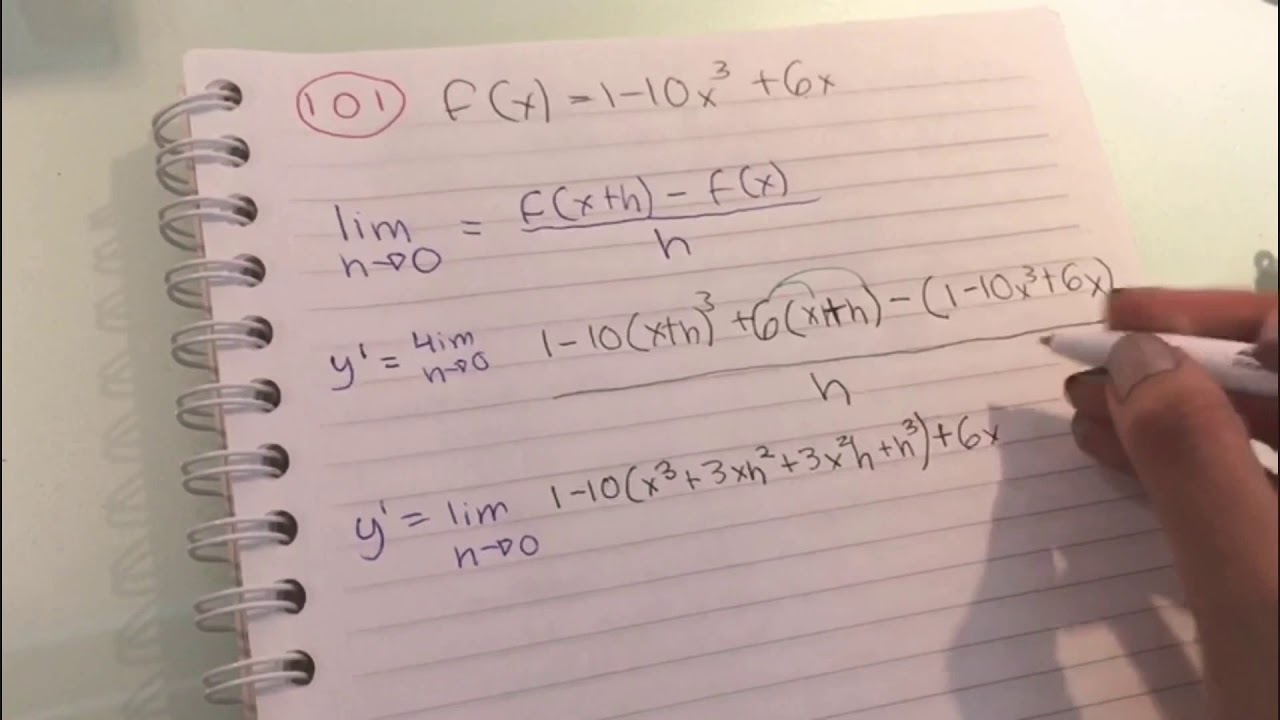 101 f(x) = 1-10x³ + 6x
lim h→0 = f(x+h) - f(x) / h
y' = lim h→0 1-10(x+h)³ + 6(x+h) - (1-10x³+6x) / h
y' = lim h→0 1-10(x³+3xh²+3x²h+h³)+6x